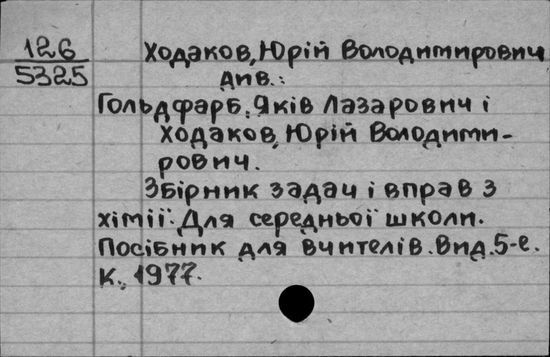 126 Ходаков, Юрій Володимирович
5325 див.:
Гольдфарб, Яків Лазарович і
Ходаков, Юрій Володими-
рович.
Збірник задач і вправ з
хімії. Для середньої школи.
Посібник для вчителів. Вид. 5-е.
К., 1977.